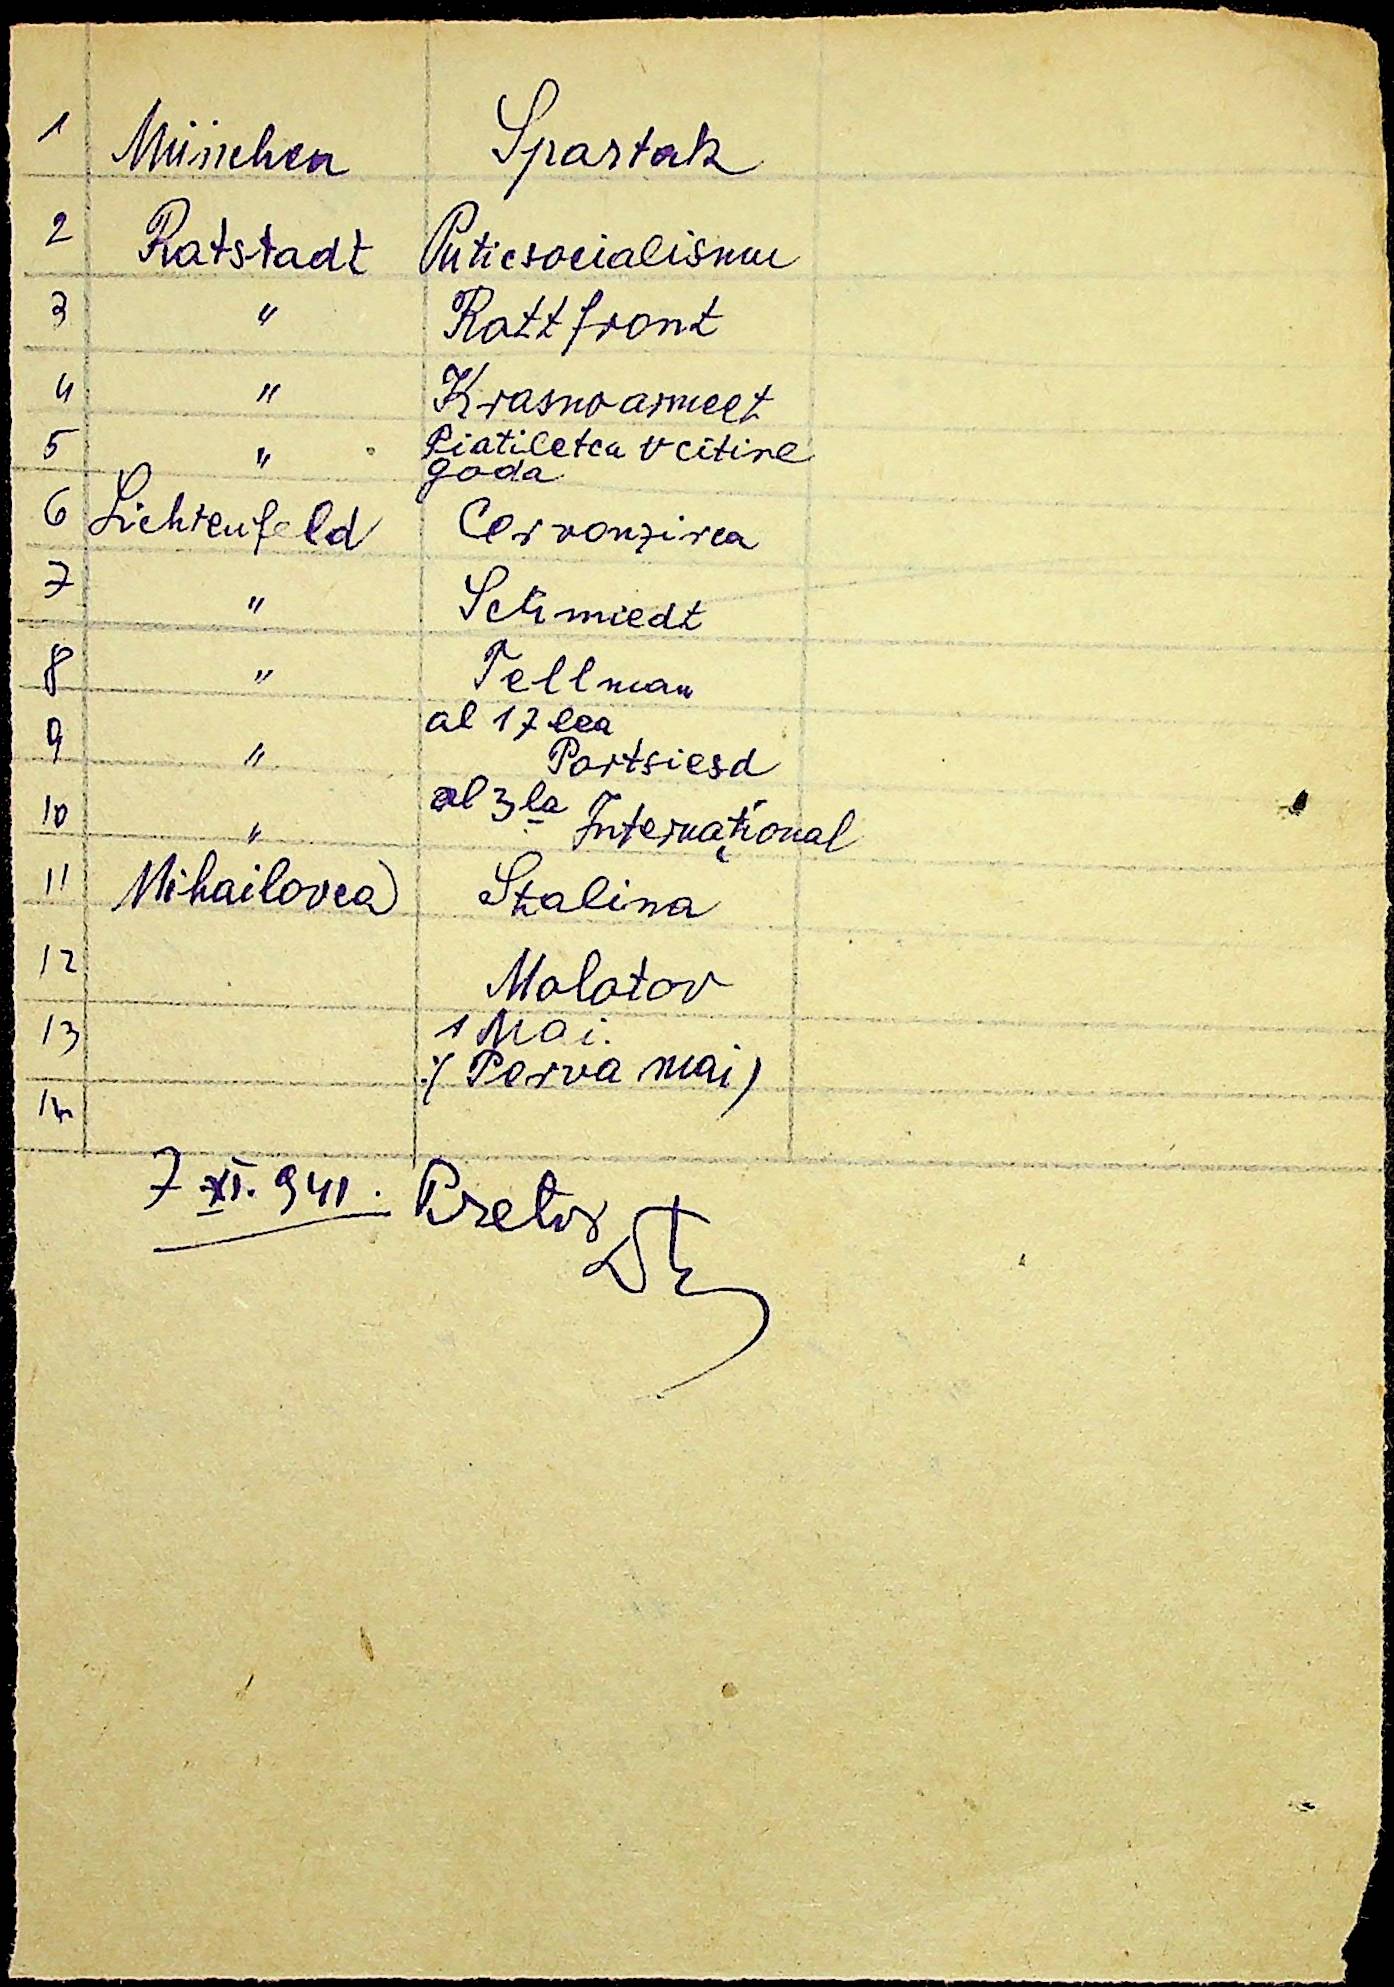 1 München Spartak
2 Ratstadt Puticsocialismu
3 " Rattfront
4 " Krasnoarmeet
5 " Piatiletca v citire
goda
6 Lichtenfeld Cervonzirca
7 " Schmiedt
8 " Tellman
al 17 lea
9 " Partsiesd
al 3 la
10 " Internațional
11 Mihailovca Stalina
12 Molotov
13 1 Mai.
(Perva mai)
14
7 XI. 941. Pretor